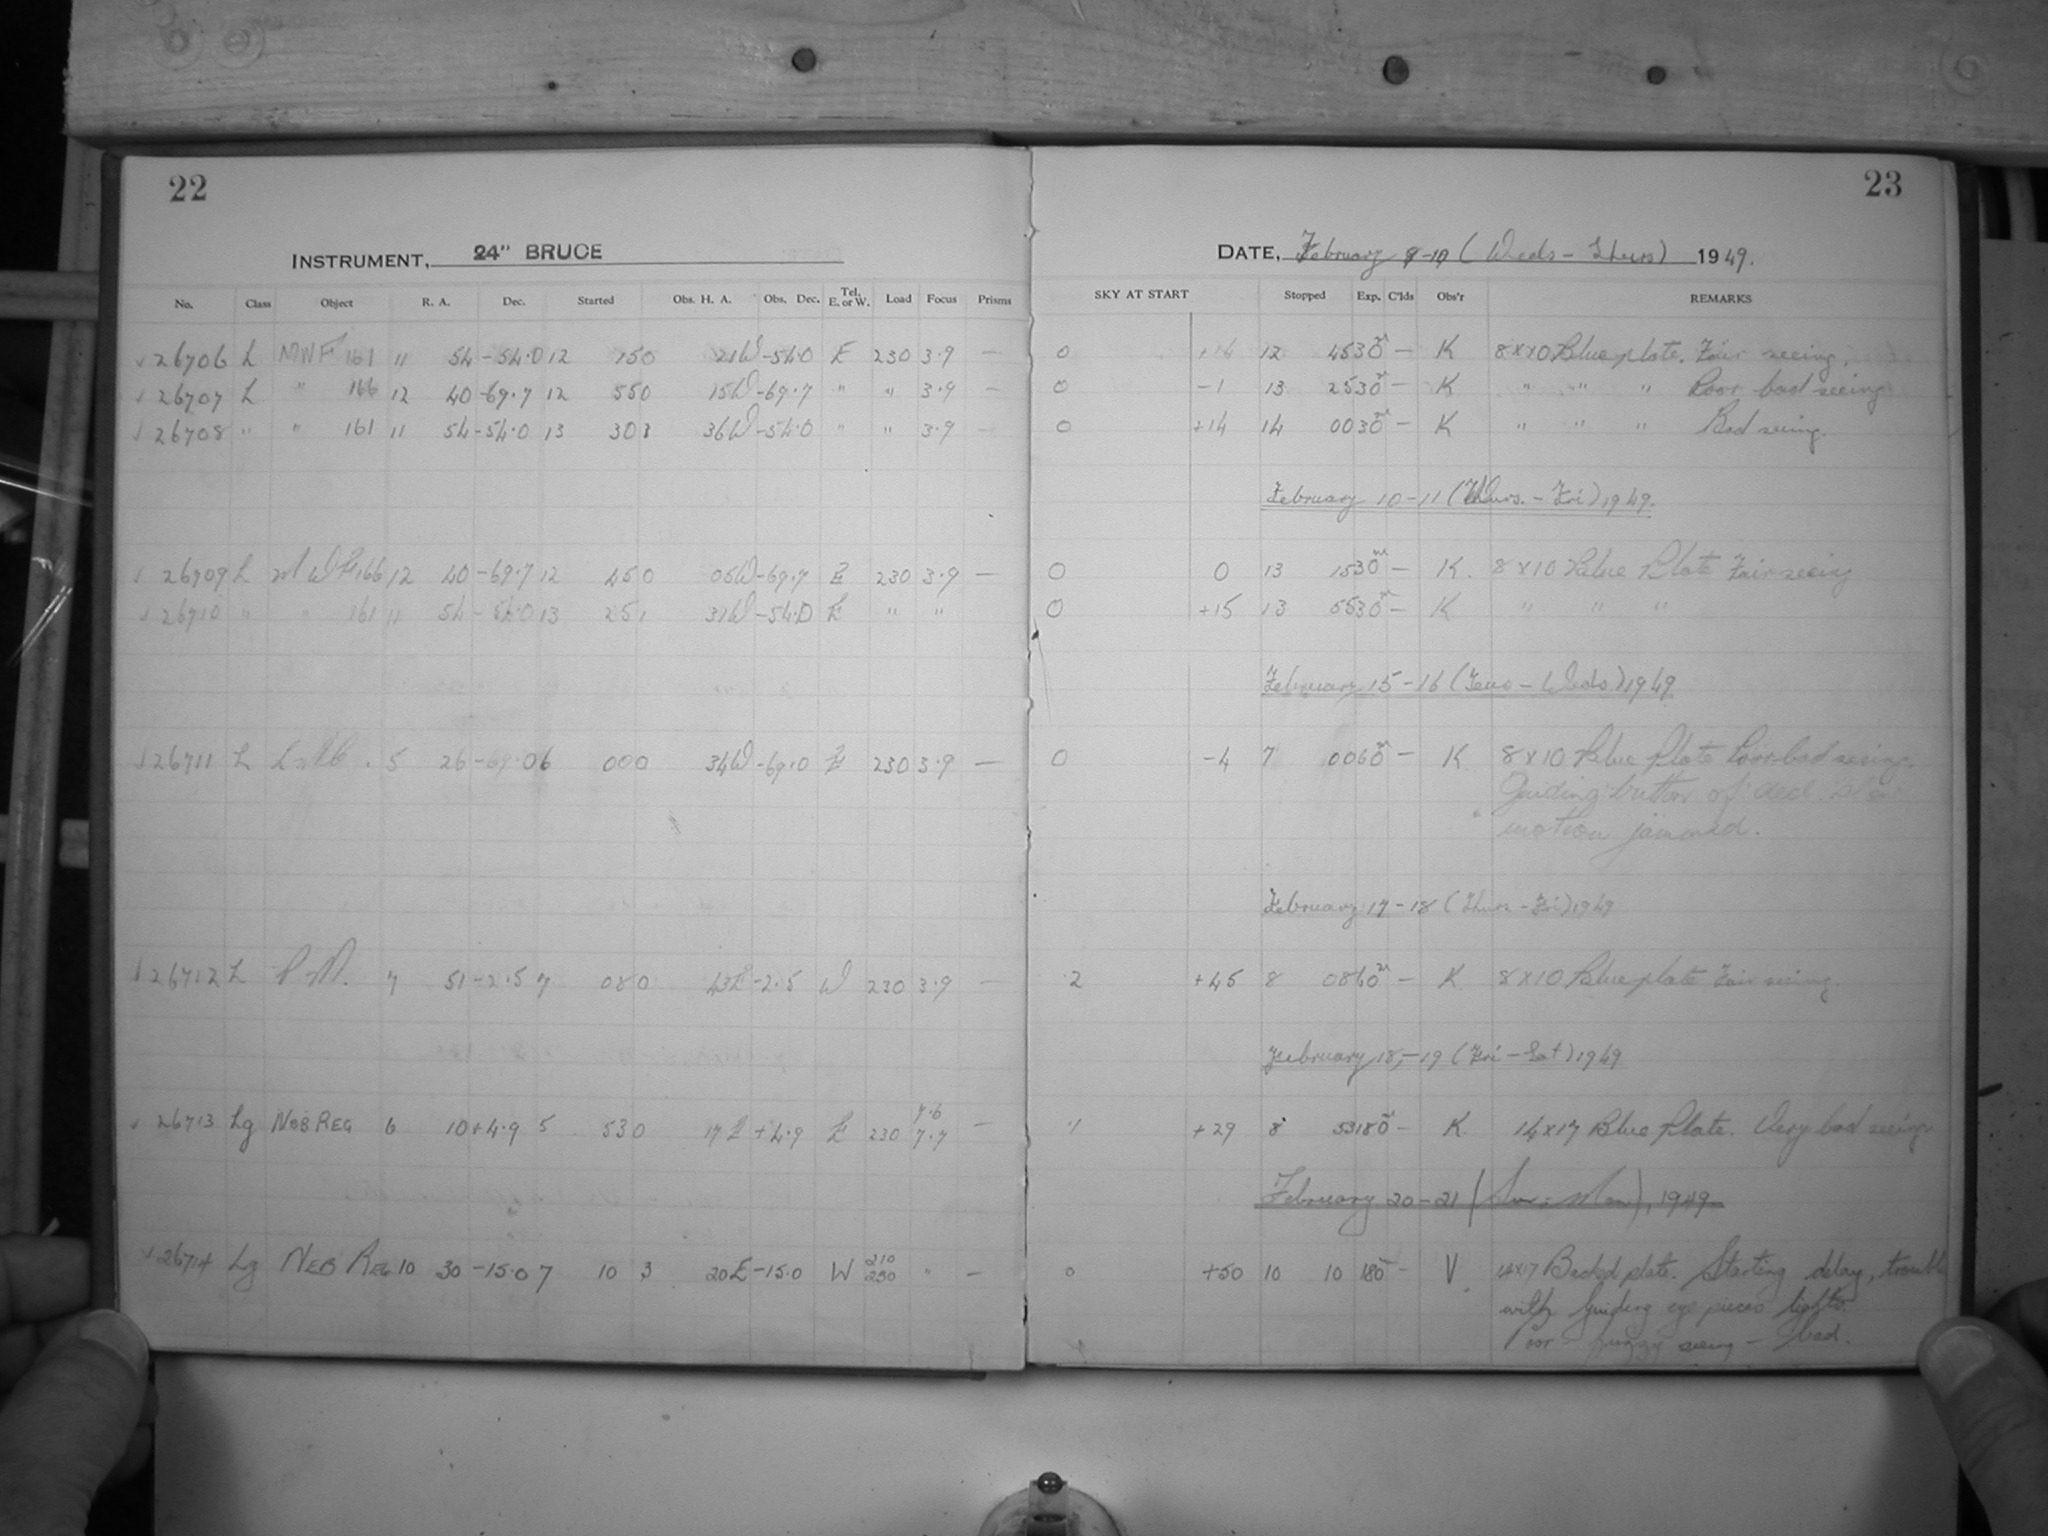 22
23
INSTRUMENT, 24" BRUCE
DATE, February 9-10 (Weds - Thurs) 1949.
No. Class Object R. A. Dec. Started Obs. H. A. Obs. Dec. Tel. E. or W. Load Focus Prisms SKY AT START Stopped Exp. C'lds Obs'r REMARKS
√ 26706 L MWF 161 11 54 -54.0 12 150 21W -54.0 E 230 3.9 — 0 +14 12 45 30m — K 8x10 Blue plate. Fair seeing.
√ 26707 L " 166 12 40 -69.7 12 550 15W -69.7 " " 3.9 — 0 -1 13 25 30m — K " " " Poor bad seeing
√ 26708 " " 161 11 54 -54.0 13 301 36W -54.0 " " 3.9 — 0 +14 14 00 30m — K " " " Bad seeing.
February 10-11 (Thurs. - Fri) 1949.
√ 26709 L MWF 166 12 40 -69.7 12 450 05W -69.7 E 230 3.9 — 0 0 13 15 30m — K. 8x10 Blue Plate Fair seeing
√ 26710 " " 161 11 54 -54.0 13 251 31W -54.0 E " " 0 +15 13 55 30m — K " " "
February 15-16 (Tues - Weds) 1949
√ 26711 L 5 26 -69.0 6 000 34W -69.0 E 230 3.9 — 0 -4 7 00 60m — K 8x10 Blue Plate Poor-bad seeing.
Guiding button of dec. slow
motion jammed.
February 17-18 (Thurs - Fri) 1949
√ 26712 L 7 51 -2.5 7 080 43E -2.5 W 230 3.9 — 2 +45 8 08 60m — K 8x10 Blue plate Fair seeing.
February 18-19 (Fri - Sat) 1949
7.6
√ 26713 Lg NEB REG 6 10 +4.9 5 530 17E +4.9 E 230 7.7 — 1 +29 8 53 180m — K. 14x17 Blue Plate. Very bad seeing
February 20-21 (Sun - Mon), 1949
√ 26714 Lg NEB REG 10 30 -15.0 7 10 3 20E -15.0 W 210 230 " — 0 +50 10 10 180m — V. 14x17 Backed plate. Starting delay, trouble
with guiding eyepieces lights.
Poor - fuzzy seeing - bad.